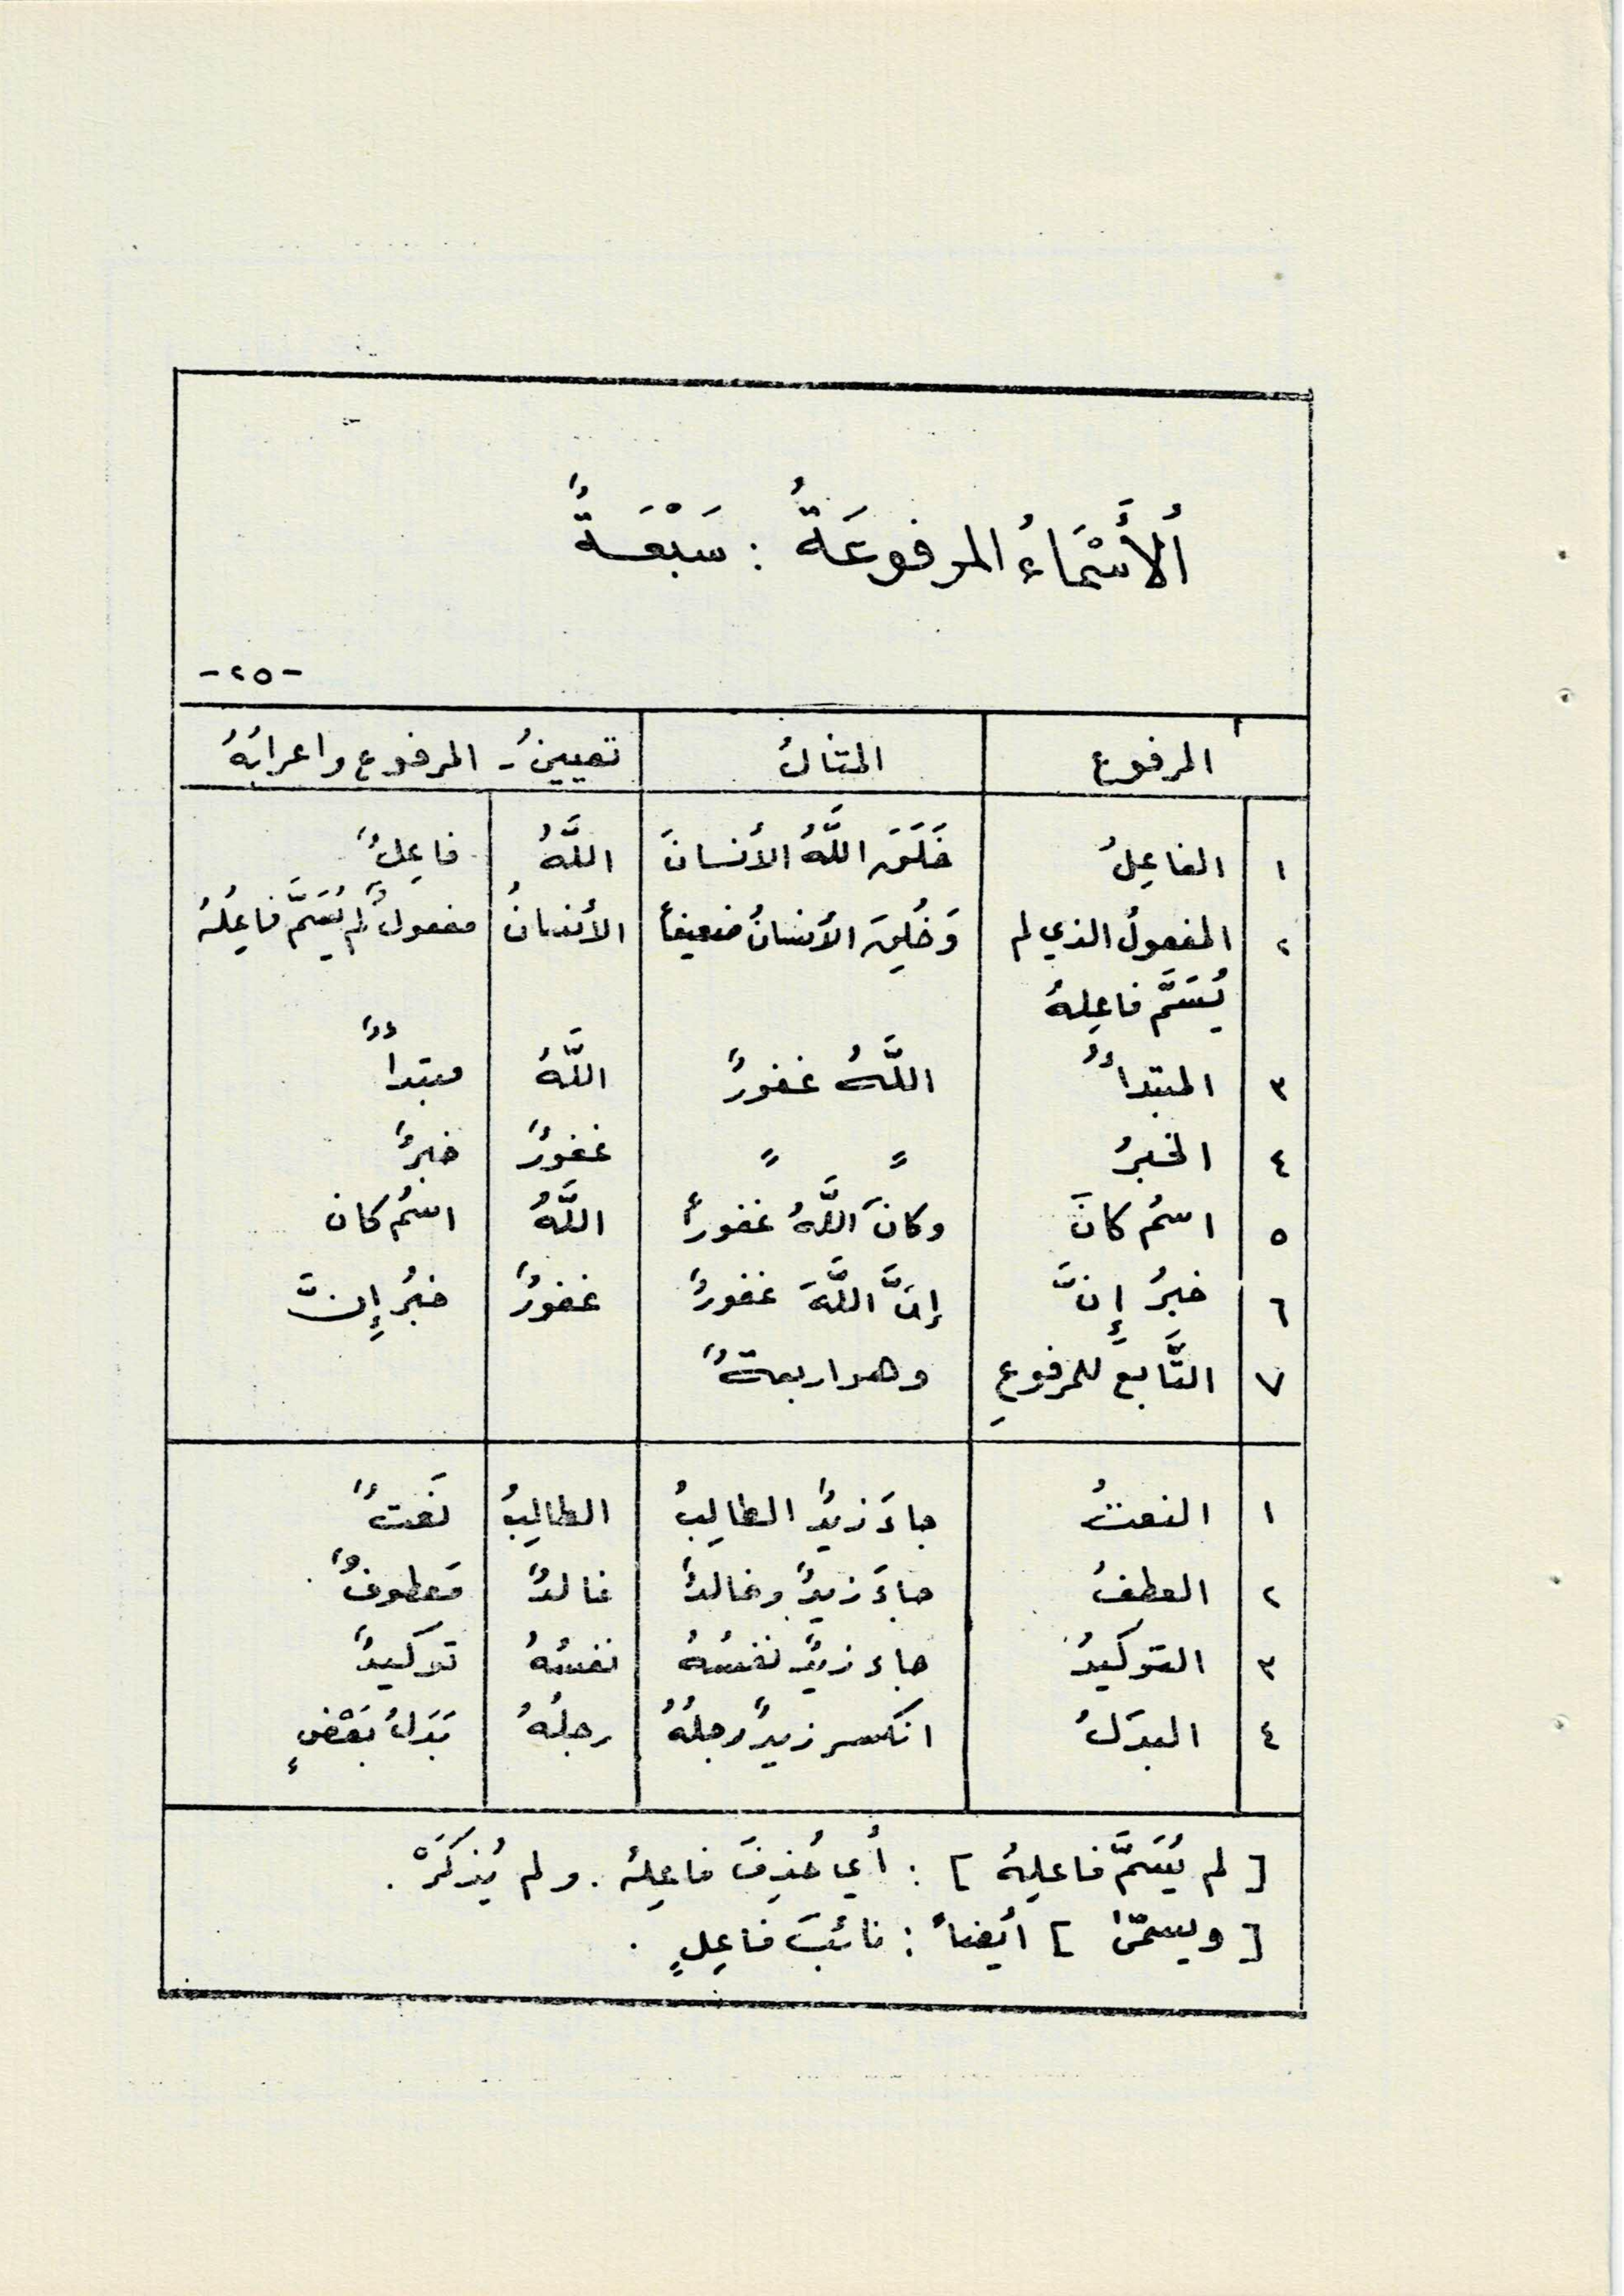 أُلأَسْمَاءُ المرفوعَةُ : سَبْعَةٌ
-٢٥-
المرفوع المثالُ تعيينُ - المرفوع واعرابُهُ
١ الفاعِلُ خَلَقَ اللَّهُ الأنسانَ اللَّهُ فاعِلٌ
٢ المفعولُ الذي لم وَخُلِقَ الأنسانُ ضعيفاً الأنسانُ مفعولٌ لم يُسَمَّ فاعِلُهُ
يُسَمَّ فاعِلهُ
٣ المبتدأُ اللَّهُ غفورٌ اللَّهُ مبتدأٌ
٤ الخبرُ 〃 〃 غفورٌ خبرٌ
٥ اسمُ كانَ وكانَ اللَّهُ غفوراً اللَّهُ اسمُ كان
٦ خبرُ إِنَّ إِنَّ اللَّهَ غفورٌ غفورٌ خبرُ إِنَّ
٧ التَّابع للمرفوعِ وهو اربعةٌ
١ النعتُ جاءَ زيدٌ الطالِبُ الطالِبُ نَعتٌ
٢ العطفُ جاءَ زيدٌ وخالدٌ خالدٌ مَعطوفٌ
٣ التوكَيدُ جاء زيدٌ نفسُهُ نفسُهُ توكَيدٌ
٤ البدَلُ انكسر زيدٌ رجلُهُ رجلُهُ بَدَلُ بَعْضٍ
[ لم يُسَمَّ فاعلِهُ ] : أي حُذِفَ فاعِلهُ . ولم يُذكَرْ .
[ ويسمّىٰ ] أيضاً : نائبَ فاعِلٍ .